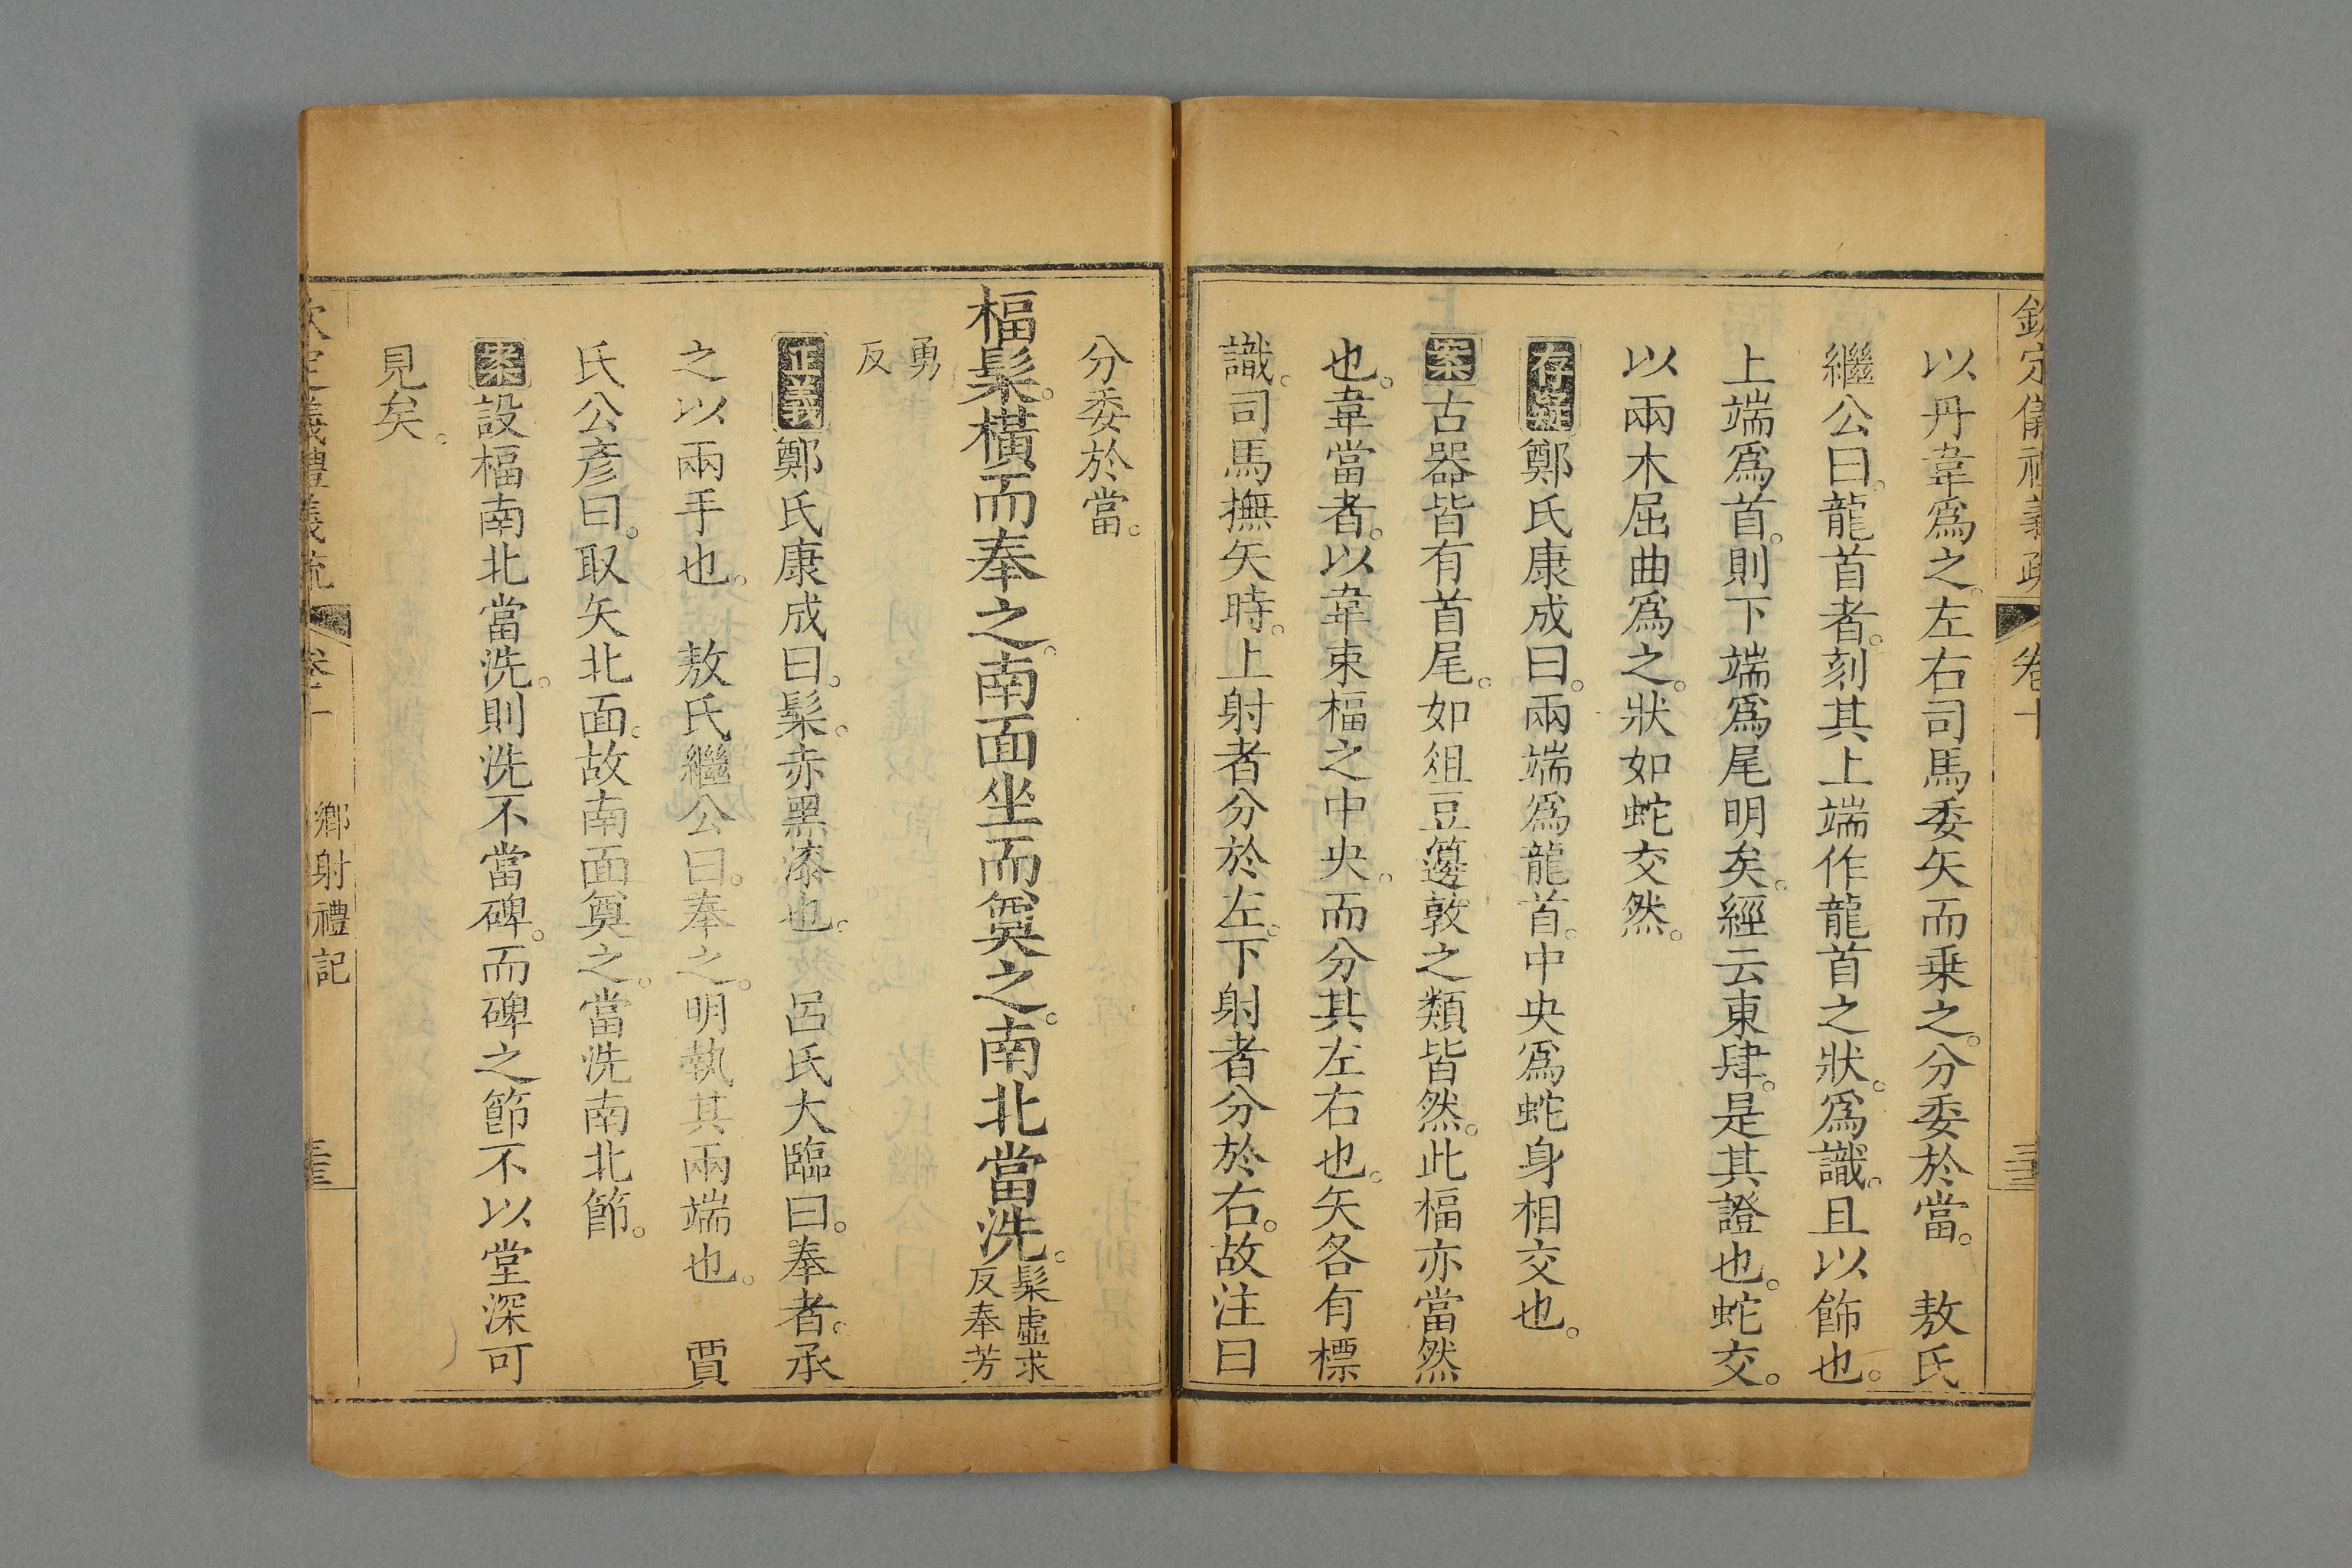 欽定儀禮義疏 卷十
以丹韋爲之。左右司馬委矢而乗之。分委於當。 敖氏
繼公曰。龍首者。刻其上端作龍首之狀。爲識。且以飾也。
上端爲首。則下端爲尾明矣。經云東肆。是其證也。蛇交。
以兩木屈曲爲之。狀如蛇交然。
存疑鄭氏康成曰。兩端爲龍首。中央爲蛇身相交也。
案古器皆有首尾。如俎豆籩敦之類皆然。此楅亦當然
也。韋當者。以韋束楅之中央。而分其左右也。矢各有標
識。司馬撫矢時。上射者分於左。下射者分於右。故注曰
分委於當。
楅髤。橫而奉之。南面坐而奠之。南北當洗。髤虛求
反奉芳
勇
反
正義鄭氏康成曰。髤。赤黑漆也。 呂氏大臨曰。奉者。承
之以兩手也。 敖氏繼公曰。奉之。明執其兩端也。 賈
氏公彥曰。取矢北面。故南面奠之。當洗南北節。
案設楅南北當洗。則洗不當碑。而碑之節不以堂深可
見矣。
欽定儀禮義疏 卷十 鄉射禮記